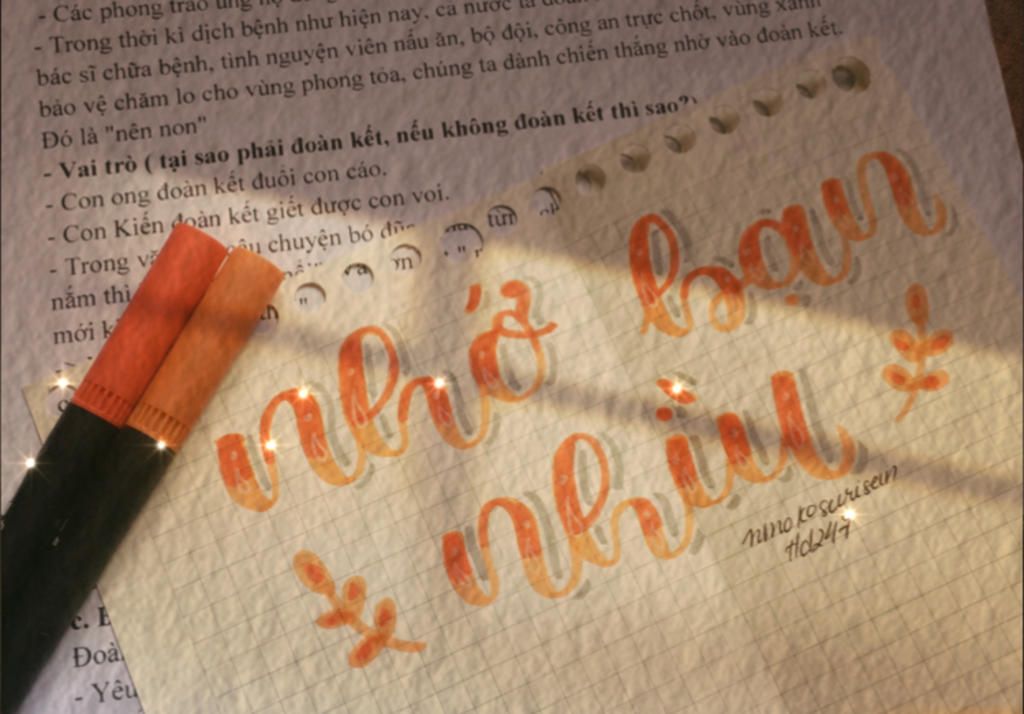 - Các phong trào ủng hộ
- Trong thời kì dịch bệnh như hiện nay, cả nước ta đoàn
bác sĩ chữa bệnh, tình nguyện viên nấu ăn, bộ đội, công an trực chốt, vùng xanh
bảo vệ chăm lo cho vùng phong tỏa, chúng ta dành chiến thắng nhờ vào đoàn kết.
Đó là "nên non"
- Vai trò ( tại sao phải đoàn kết, nếu không đoàn kết thì sao?)
- Con ong đoàn kết đuổi con cáo.
- Con Kiến đoàn kết giết được con voi.
- Trong câu chuyện bó đũa
nắm thì
mới
nhớ bạn
nhìu
ninokosurisein
Hd247
c.
Đoà
- Yêu